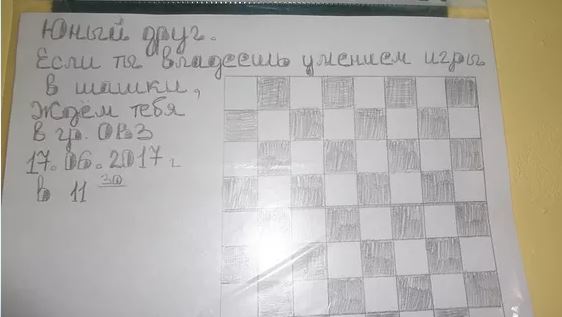 Юный друг.
Если ты владеешь умением игры
в шашки,
Ждём тебя
в гр. ОВЗ
17.06.2017 г
в 11 30